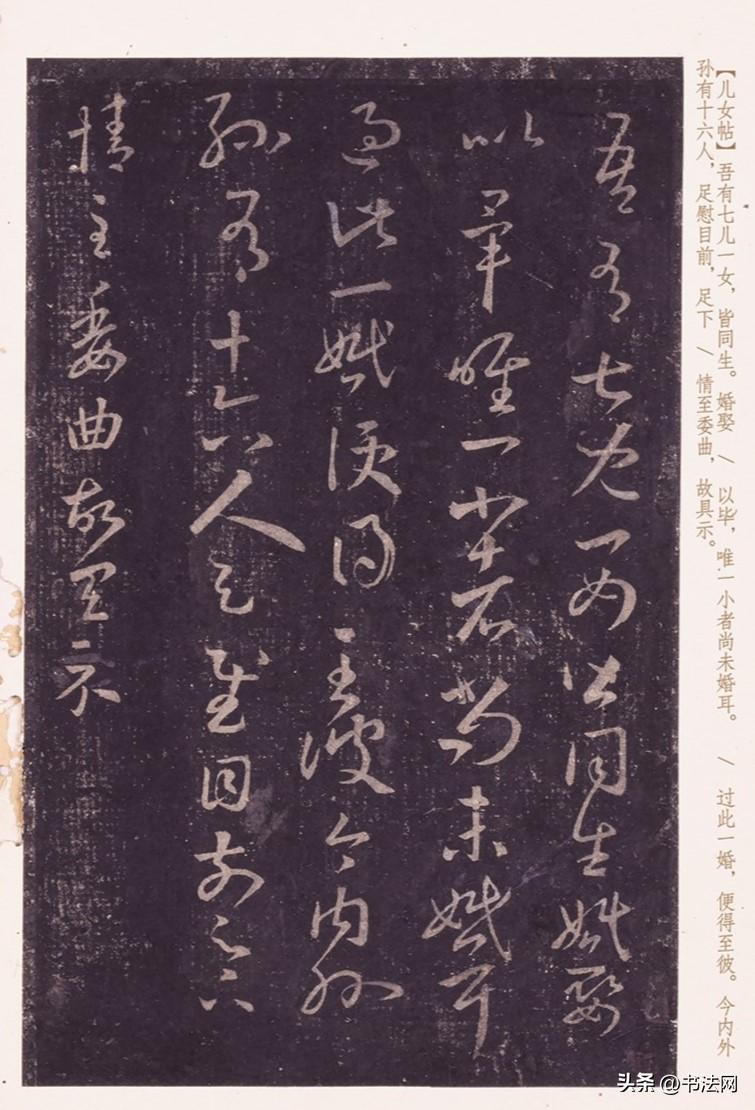 【儿女帖】吾有七儿一女，皆同生。婚娶 / 以毕，唯一小者尚未婚耳。 / 过此一婚，便得至彼。今内外
孙有十六人，足慰目前，足下 / 情至委曲，故具示。
吾有七兒一女皆同生婚娶
以畢唯一小者尚未婚耳
過此一婚便得至彼今内外
孫有十六人足慰目前足下
情至委曲故具示
头条 @书法网